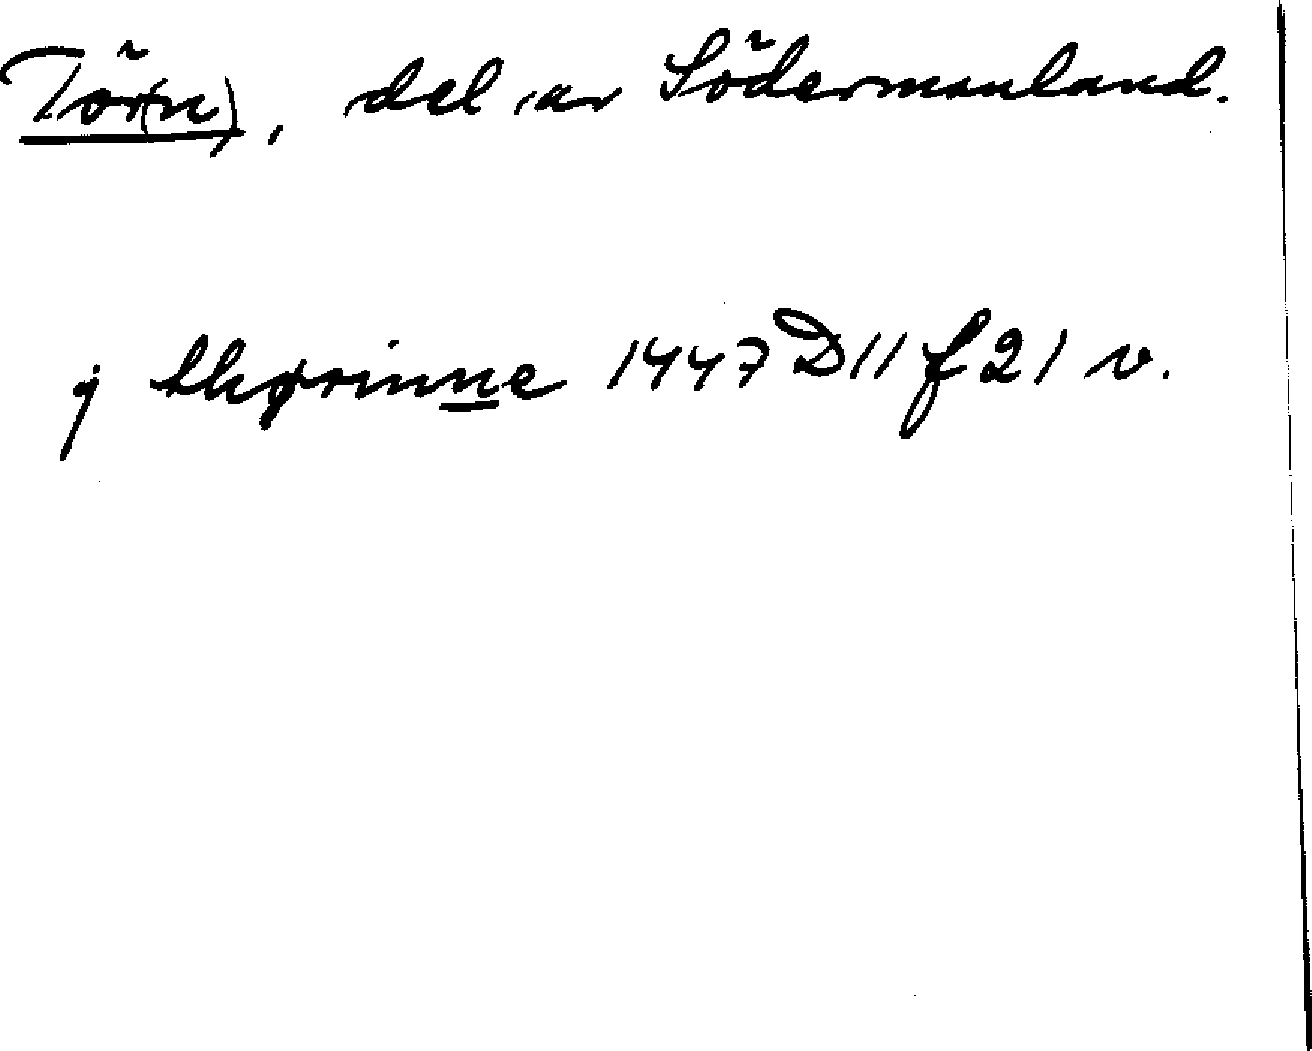 Tör(n), del av Södermanland.
j thørinne 1447 D11 f 21 v.